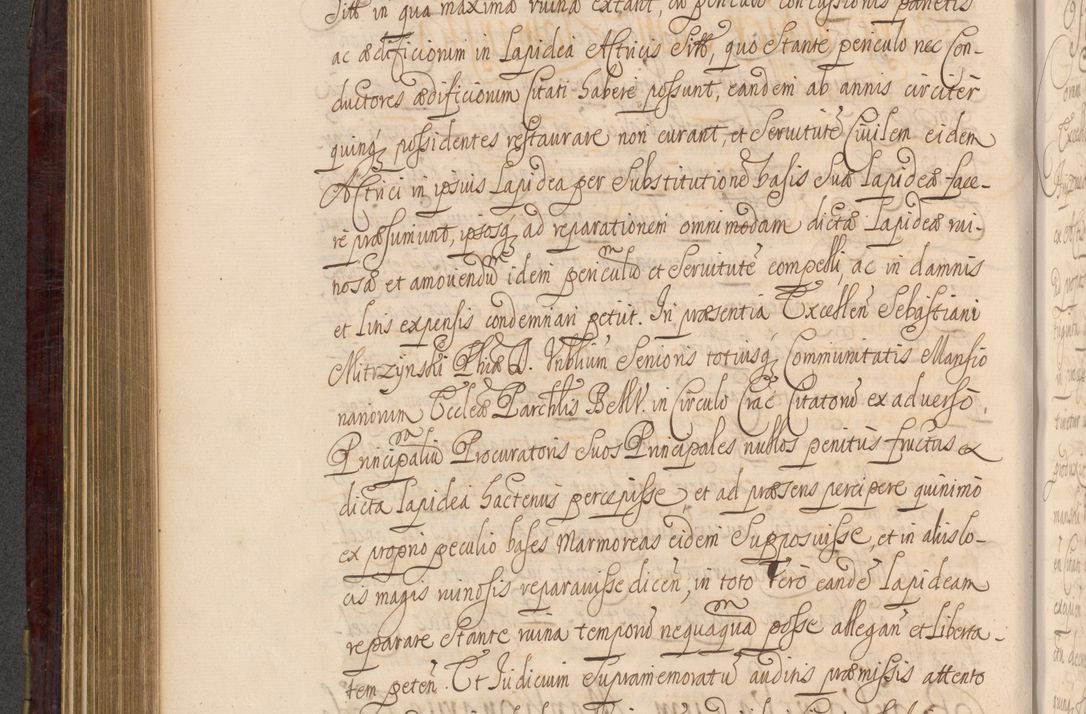 Sitt in qua maxima ruina extant, ob periculū concussionis parietis
ac ædificiorum in Lapidea Actricis Sitt, quo stante periculo nec Con-
ductores ædificiorum Citati habere possunt, eandem ab annis circiter
quinq possidentes restaurare non curant, et Servitutē Civilem eidem
Actrici in ipsius Lapidea per Substitutionē basis Suæ Lapideæ face-
re præsumunt, ipsosq ad reparationem omnimodam dictæ Lapideæ rui-
nosæ et amovendū idem periculū et Servitutē compelli, ac in damnis
et Litis expensis condemnari petiit. In præsentia Excellēn Sebastiani
Mitrzynski Phiæ D. Publium Senioris totiusq Communitatis Mansio
nariorum Ecclæ Parchlis BeMV. in Circulo Crac̄ Citatorū ex adverso
Principaliū Procuratoris Suos Principales nullos penitus fructus ex
dicta Lapidea hactenus percepisse, et ad præsens percipere quinimo
ex proprio peculio bases Marmoreas eidem Supposuisse, et in aliis lo-
cis magis ruinosis reparavisse dicēn, in toto Vero eandē Lapideam
reparare stante ruina temporū nequaquā posse allegān et Libera-
tem petēn. Et Judicium Supramemoratū auditis præmissis attento